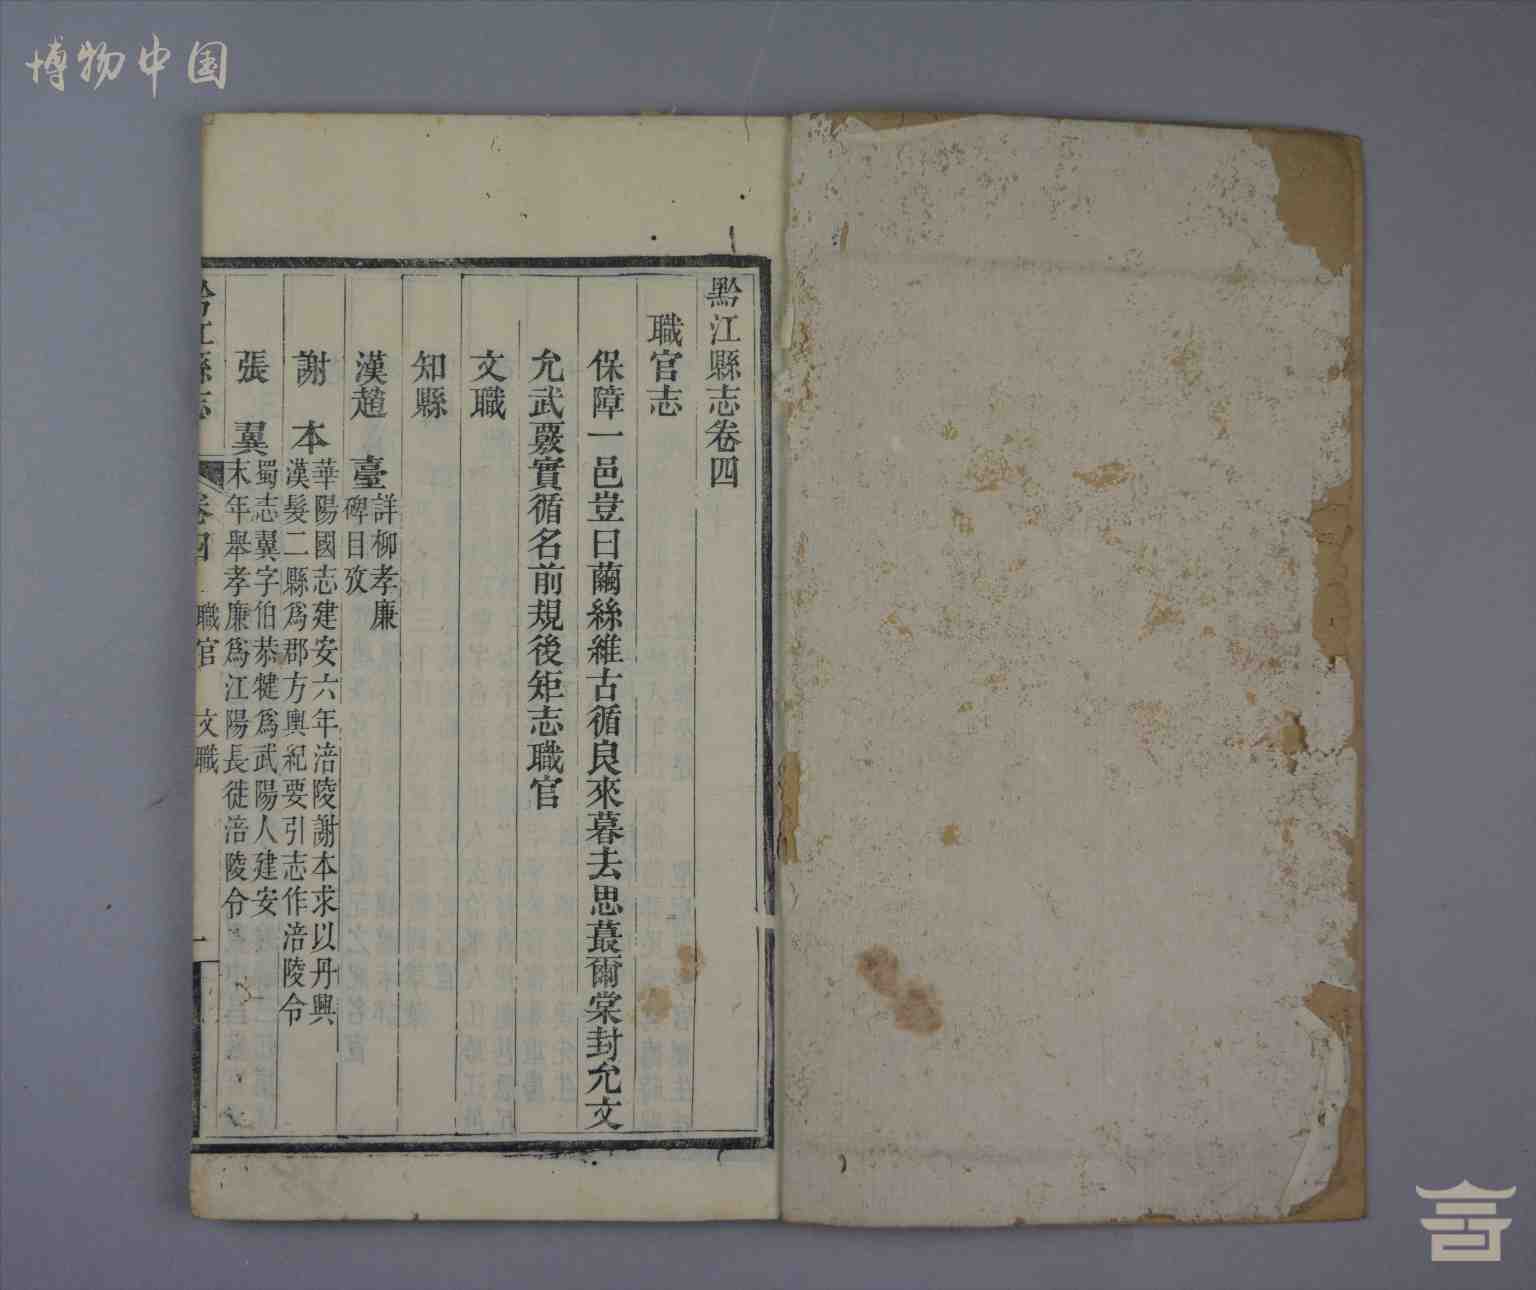 博物中国
黔江縣志卷四
職官志
保障一邑豈曰繭絲維古循良來暮去思蕞爾棠封允文
允武覈實循名前規後矩志職官
文職
知縣
漢趙 臺詳柳孝廉
碑目攷
謝 本華陽國志建安六年涪陵謝本求以丹興
漢髮二縣爲郡方輿紀要引志作涪陵令
張 翼蜀志翼字伯恭犍爲武陽人建安
末年舉孝廉爲江陽長徙涪陵令
黔江縣志 卷四 職官 文職 一